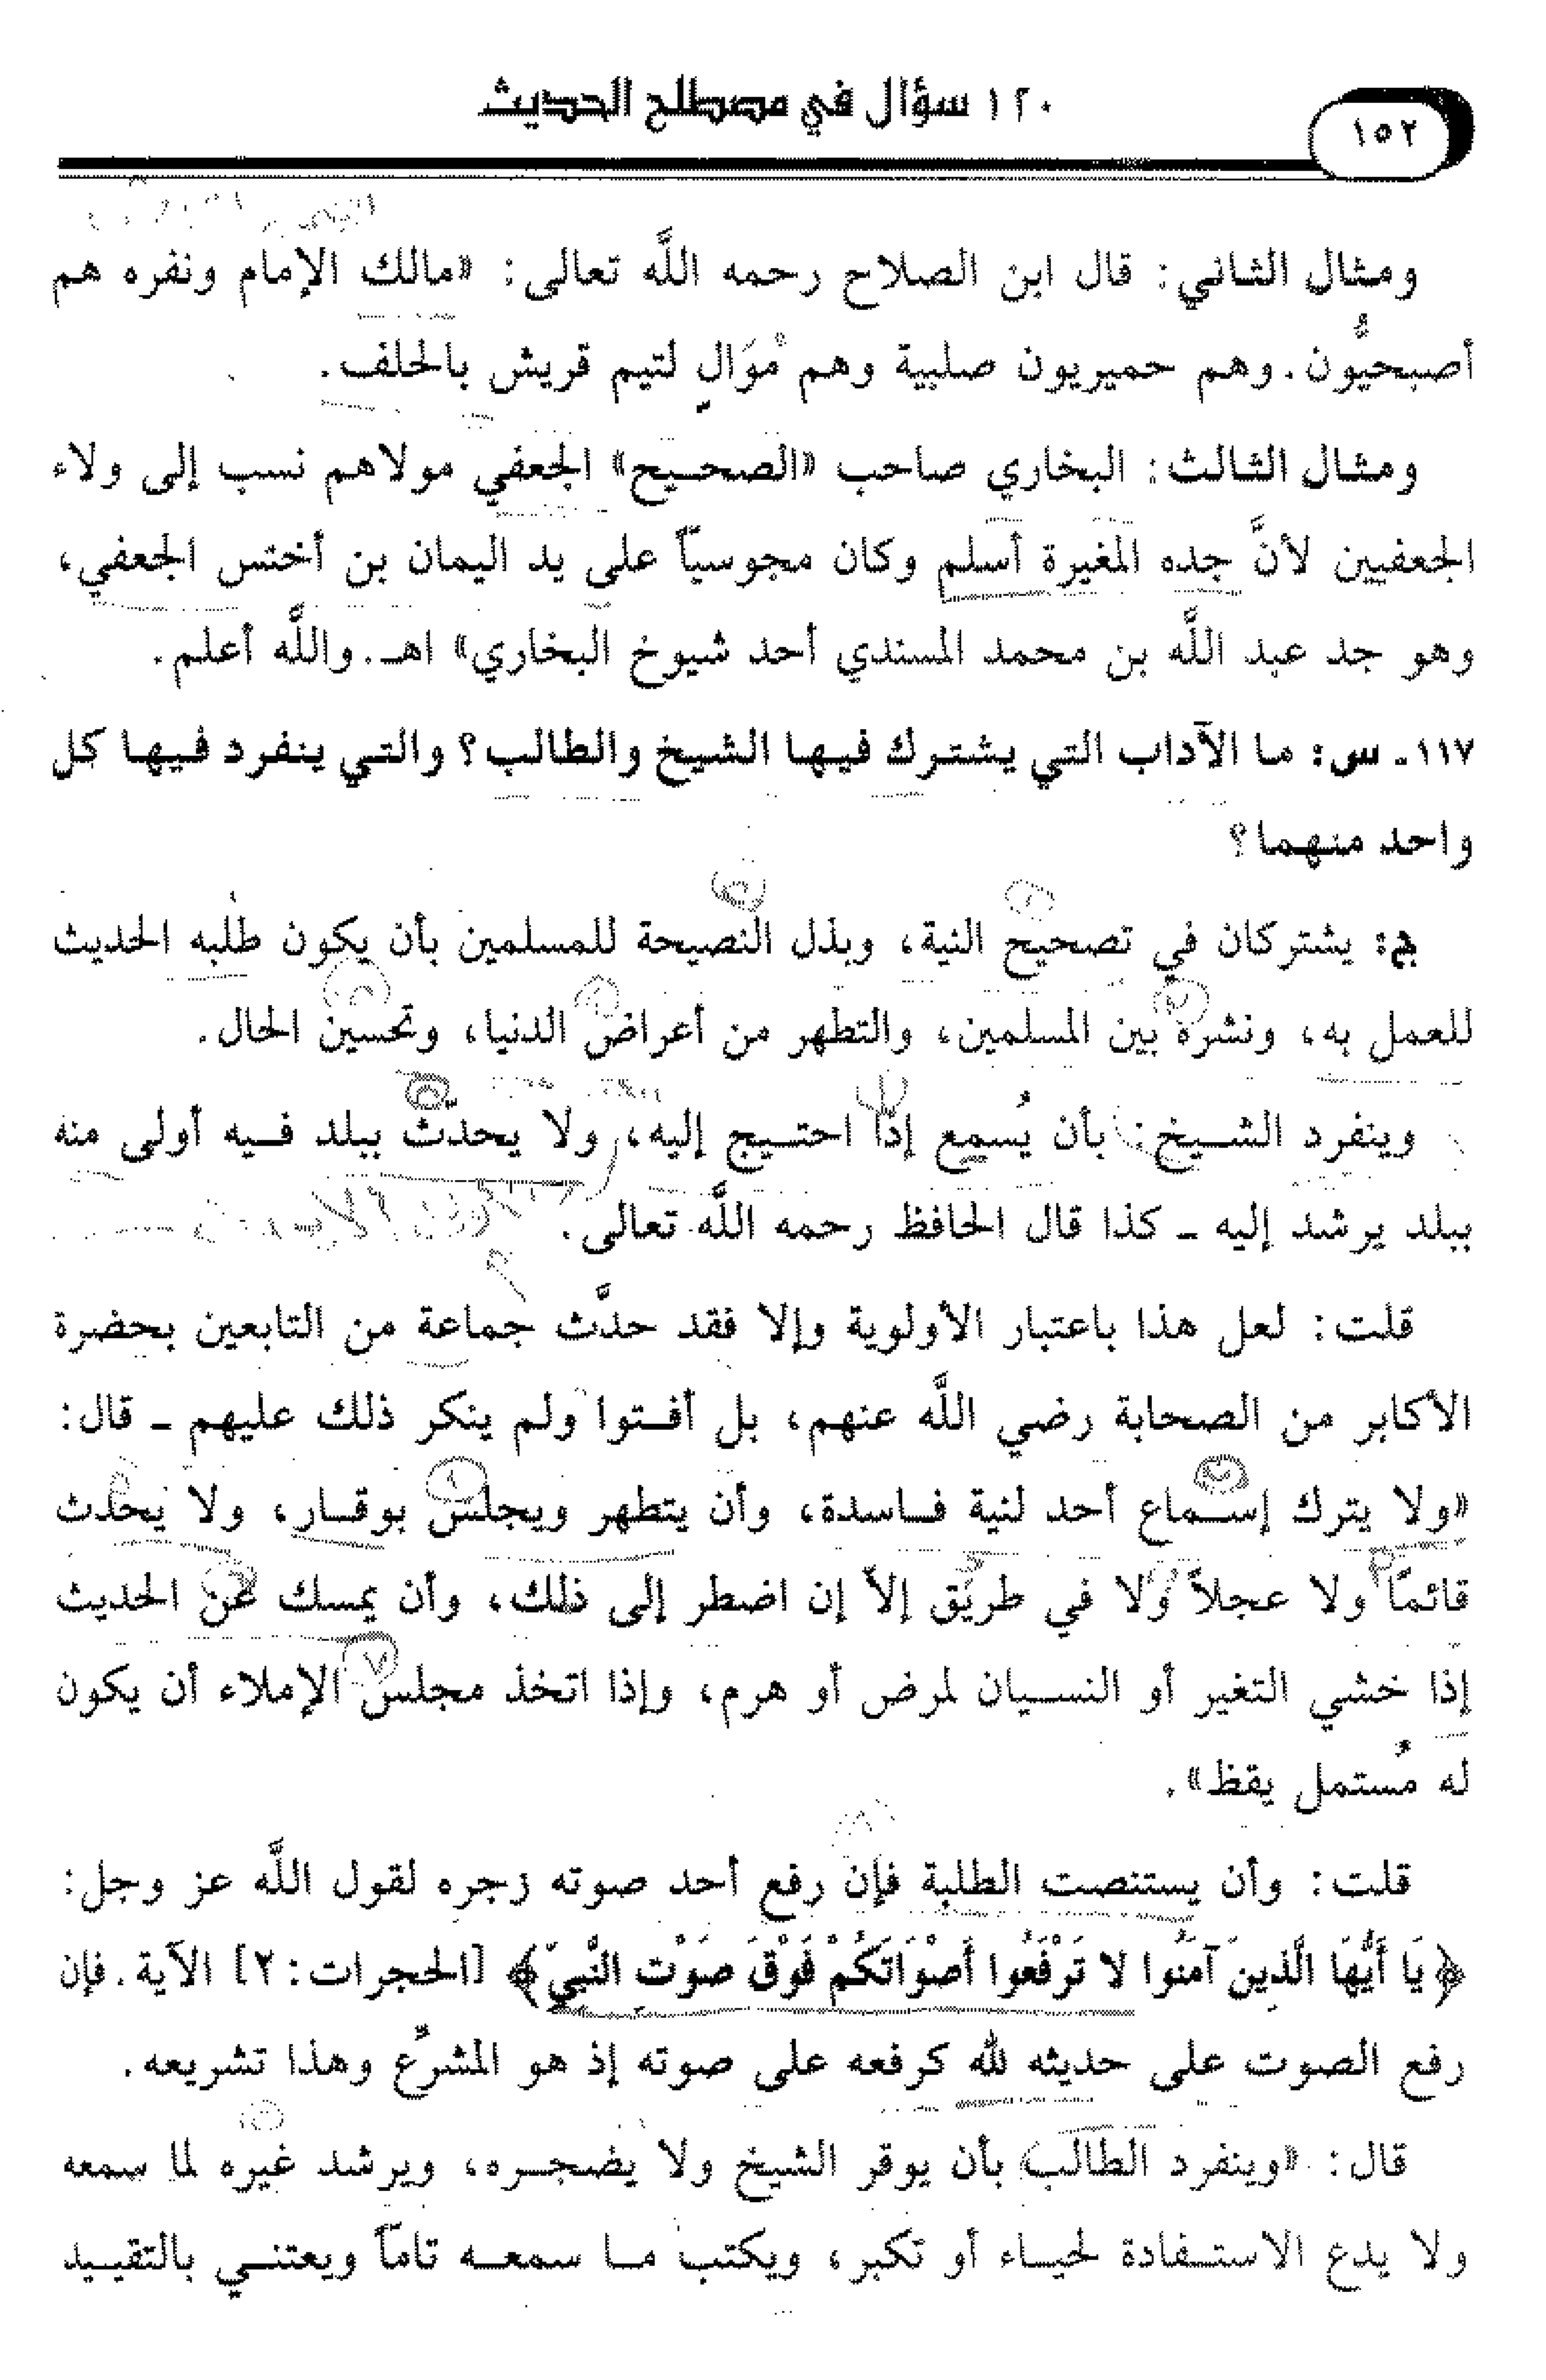 ١٢٠ سؤال في مصطلح الحديث
١٥٢
ومثال الثاني: قال ابن الصلاح رحمه اللَّه تعالى: «مالك الإمام ونفره هم
أصبحيُّون. وهم حميريون صلبية وهم مْوَالٍ لتيم قريش بالحلف.
ومثال الثالث: البخاري صاحب «الصحيح» الجعفي مولاهم نسب إلى ولاء
الجعفيين لأنَّ جده المغيرة أسلم وكان مجوسيّاً على يد اليمان بن أختس الجعفي،
وهو جد عبد اللَّه بن محمد المسندي أحد شيوخ البخاري» اهـ. واللَّه أعلم.
١١٧ـ س: ما الآداب التي يشترك فيها الشيخ والطالب؟ والتي ينفرد فيها كل
واحد منهما؟
ج: يشتركان في تصحيح النية، وبذل النصيحة للمسلمين بأن يكون طلبه الحديث
للعمل به، ونشره بين المسلمين، والتطهر من أعراض الدنيا، وتحسين الحال.
وينفرد الشيخ: بأن يُسمع إذا احتيج إليه، ولا يحدِّث ببلد فيه أولى منه
ببلد يرشد إليه ـ كذا قال الحافظ رحمه اللَّه تعالى.
قلت: لعل هذا باعتبار الأولوية وإلا فقد حدَّث جماعة من التابعين بحضرة
الأكابر من الصحابة رضي اللَّه عنهم، بل أفتوا ولم ينكر ذلك عليهم ـ قال:
«ولا يترك إسماع أحد لنية فاسدة، وأن يتطهر ويجلس بوقار، ولا يحدث
قائمًا ولا عجلاً ولا في طريق إلاّ إن اضطر إلى ذلك، وأن يمسك عن الحديث
إذا خشي التغير أو النسيان لمرض أو هرم، وإذا اتخذ مجلس الإملاء أن يكون
له مُستمل يقظ».
قلت: وأن يستنصت الطلبة فإن رفع أحد صوته زجره لقول اللَّه عز وجل:
﴿يَا أَيُّهَا الَّذِينَ آمَنُوا لا تَرْفَعُوا أَصْوَاتَكُمْ فَوْقَ صَوْتِ النَّبِيِّ﴾ [الحجرات: ٢] الآية. فإن
رفع الصوت على حديثه لله كرفعه على صوته إذ هو المشرِّع وهذا تشريعه.
قال: «وينفرد الطالب بأن يوقر الشيخ ولا يضجره، ويرشد غيره لما سمعه
ولا يدع الاستفادة لحياء أو تكبر، ويكتب ما سمعه تامّاً ويعتني بالتقييد